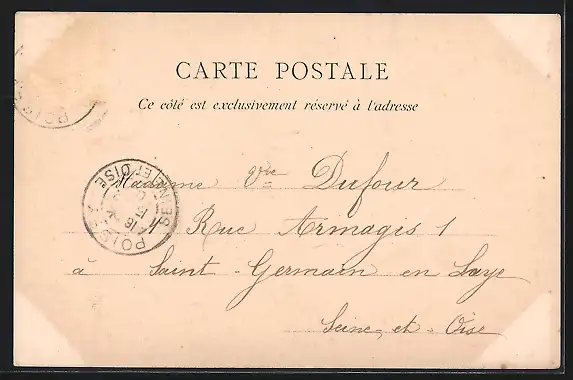 CARTE POSTALE
Ce côté est exclusivement réservé à l'adresse
POISSY
SEINE-ET-OISE
Madame Vve Dufour
Rue Armagis 1
à Saint-Germain en Laye
Seine-et-Oise